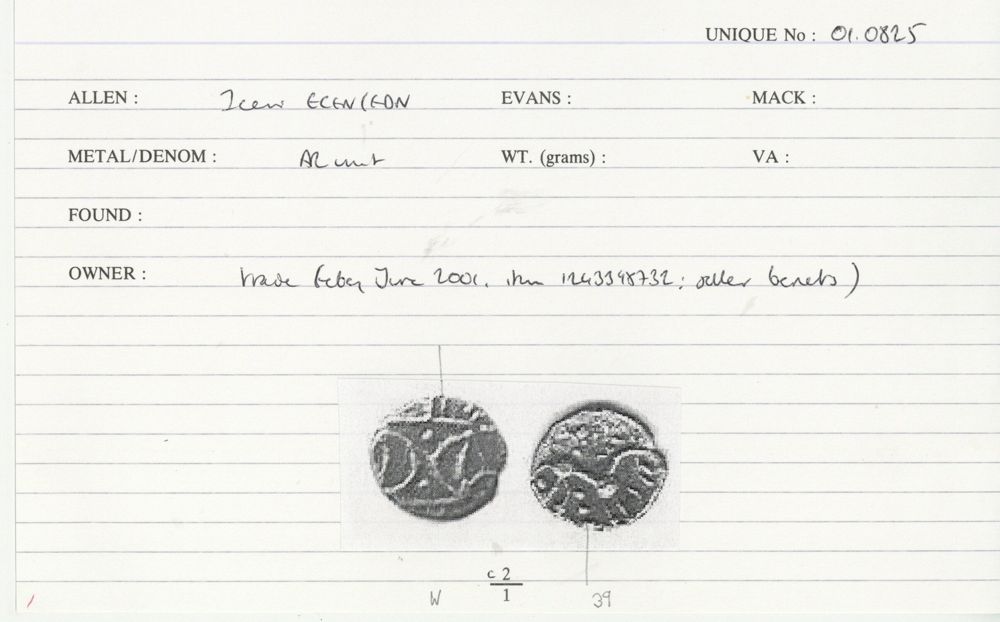 UNIQUE No : 01.0825
ALLEN : Iceni ECEN(EDN EVANS : MACK :
METAL/DENOM : AR unit WT. (grams) : VA :
FOUND :
OWNER : trade (ebay June 2001. item 1243348732; seller benets)
c 2
W 1 39